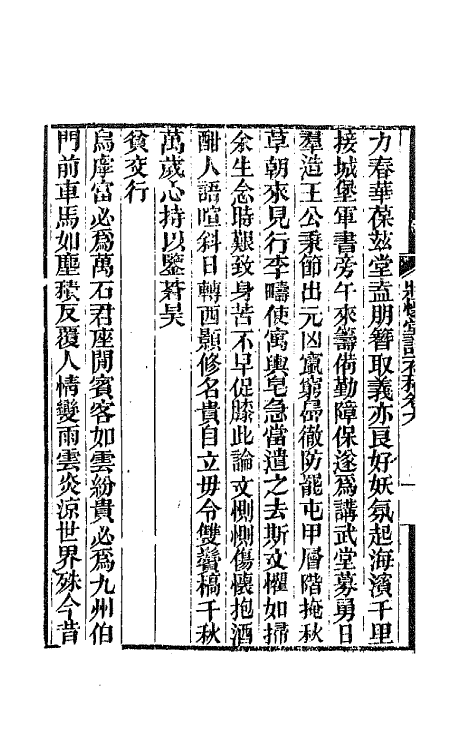 力春華葆茲堂盍朋簪取義亦良好妖氛起海濱千里
接城堡軍書旁午來籌備勤障保遂爲講武堂募勇日
羣造王公秉節出元凶竄窮島徹防罷屯甲層階掩秋
草朝來見行李疇使寓輿皂急當遣之去斯文懼如掃
余生念時艱致身苦不早促膝此論文惻惻傷懷抱酒
酣人語喧斜日轉西顥修名貴自立毋令雙鬢稿千秋
萬歲心持以鑒蒼昊
貧交行
烏虖富必爲萬石君座閒賓客如雲紛貴必爲九州伯
門前車馬如塵積反覆人情變雨雲炎涼世界殊今昔
堂詩存稿卷六
一